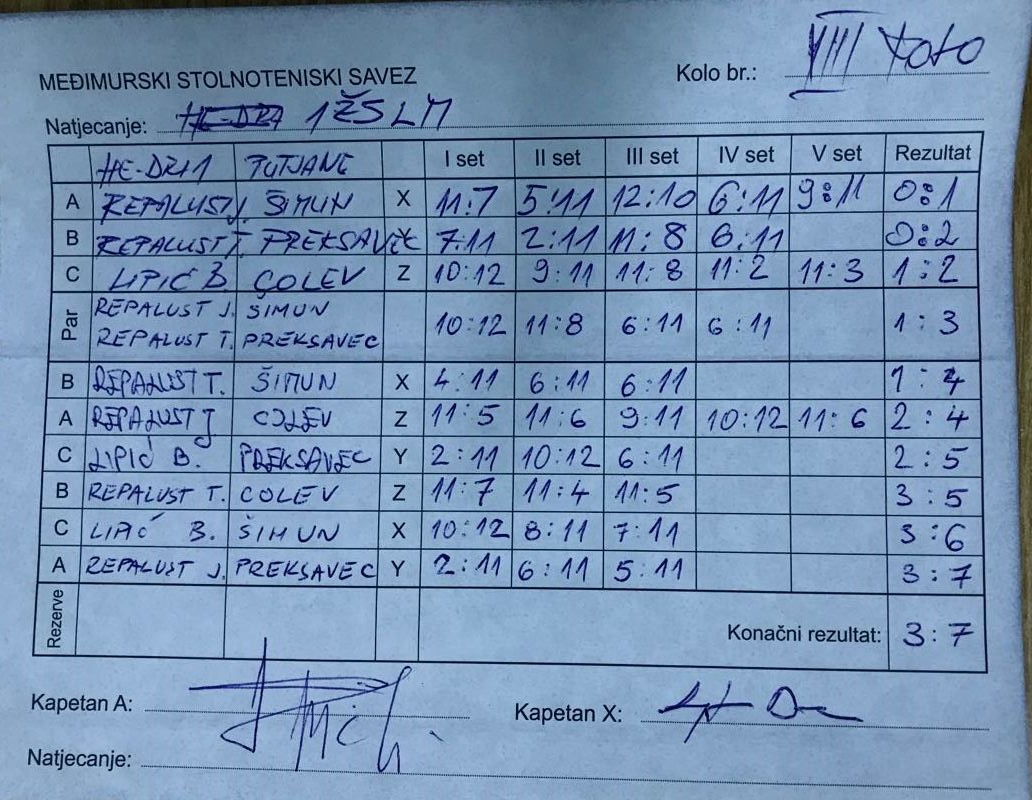 VIII KOLO
MEĐIMURSKI STOLNOTENISKI SAVEZ Kolo br.:
Natjecanje: 1 ŽSLM
HE-DRI 1 I set II set III set IV set V set Rezultat
A REPALUST J. ŠIMUN X 11:7 5:11 12:10 6:11 9:11 0:1
B REPALUST T. PREKSAVEC 7:11 2:11 11:8 6:11 0:2
C LIPIĆ B. COLEV Z 10:12 9:11 11:8 11:2 11:3 1:2
Par REPALUST J. ŠIMUN
REPALUST T. PREKSAVEC 10:12 11:8 6:11 6:11 1:3
B REPALUST T. ŠIMUN X 4:11 6:11 6:11 1:4
A REPALUST J COLEV Z 11:5 11:6 9:11 10:12 11:6 2:4
C LIPIĆ B. PREKSAVEC Y 2:11 10:12 6:11 2:5
B REPALUST T. COLEV Z 11:7 11:4 11:5 3:5
C LIPIĆ B. ŠIMUN X 10:12 8:11 7:11 3:6
A REPALUST J. PREKSAVEC Y 2:11 6:11 5:11 3:7
Rezerve Konačni rezultat: 3:7
Kapetan A: Kapetan X:
Natjecanje: